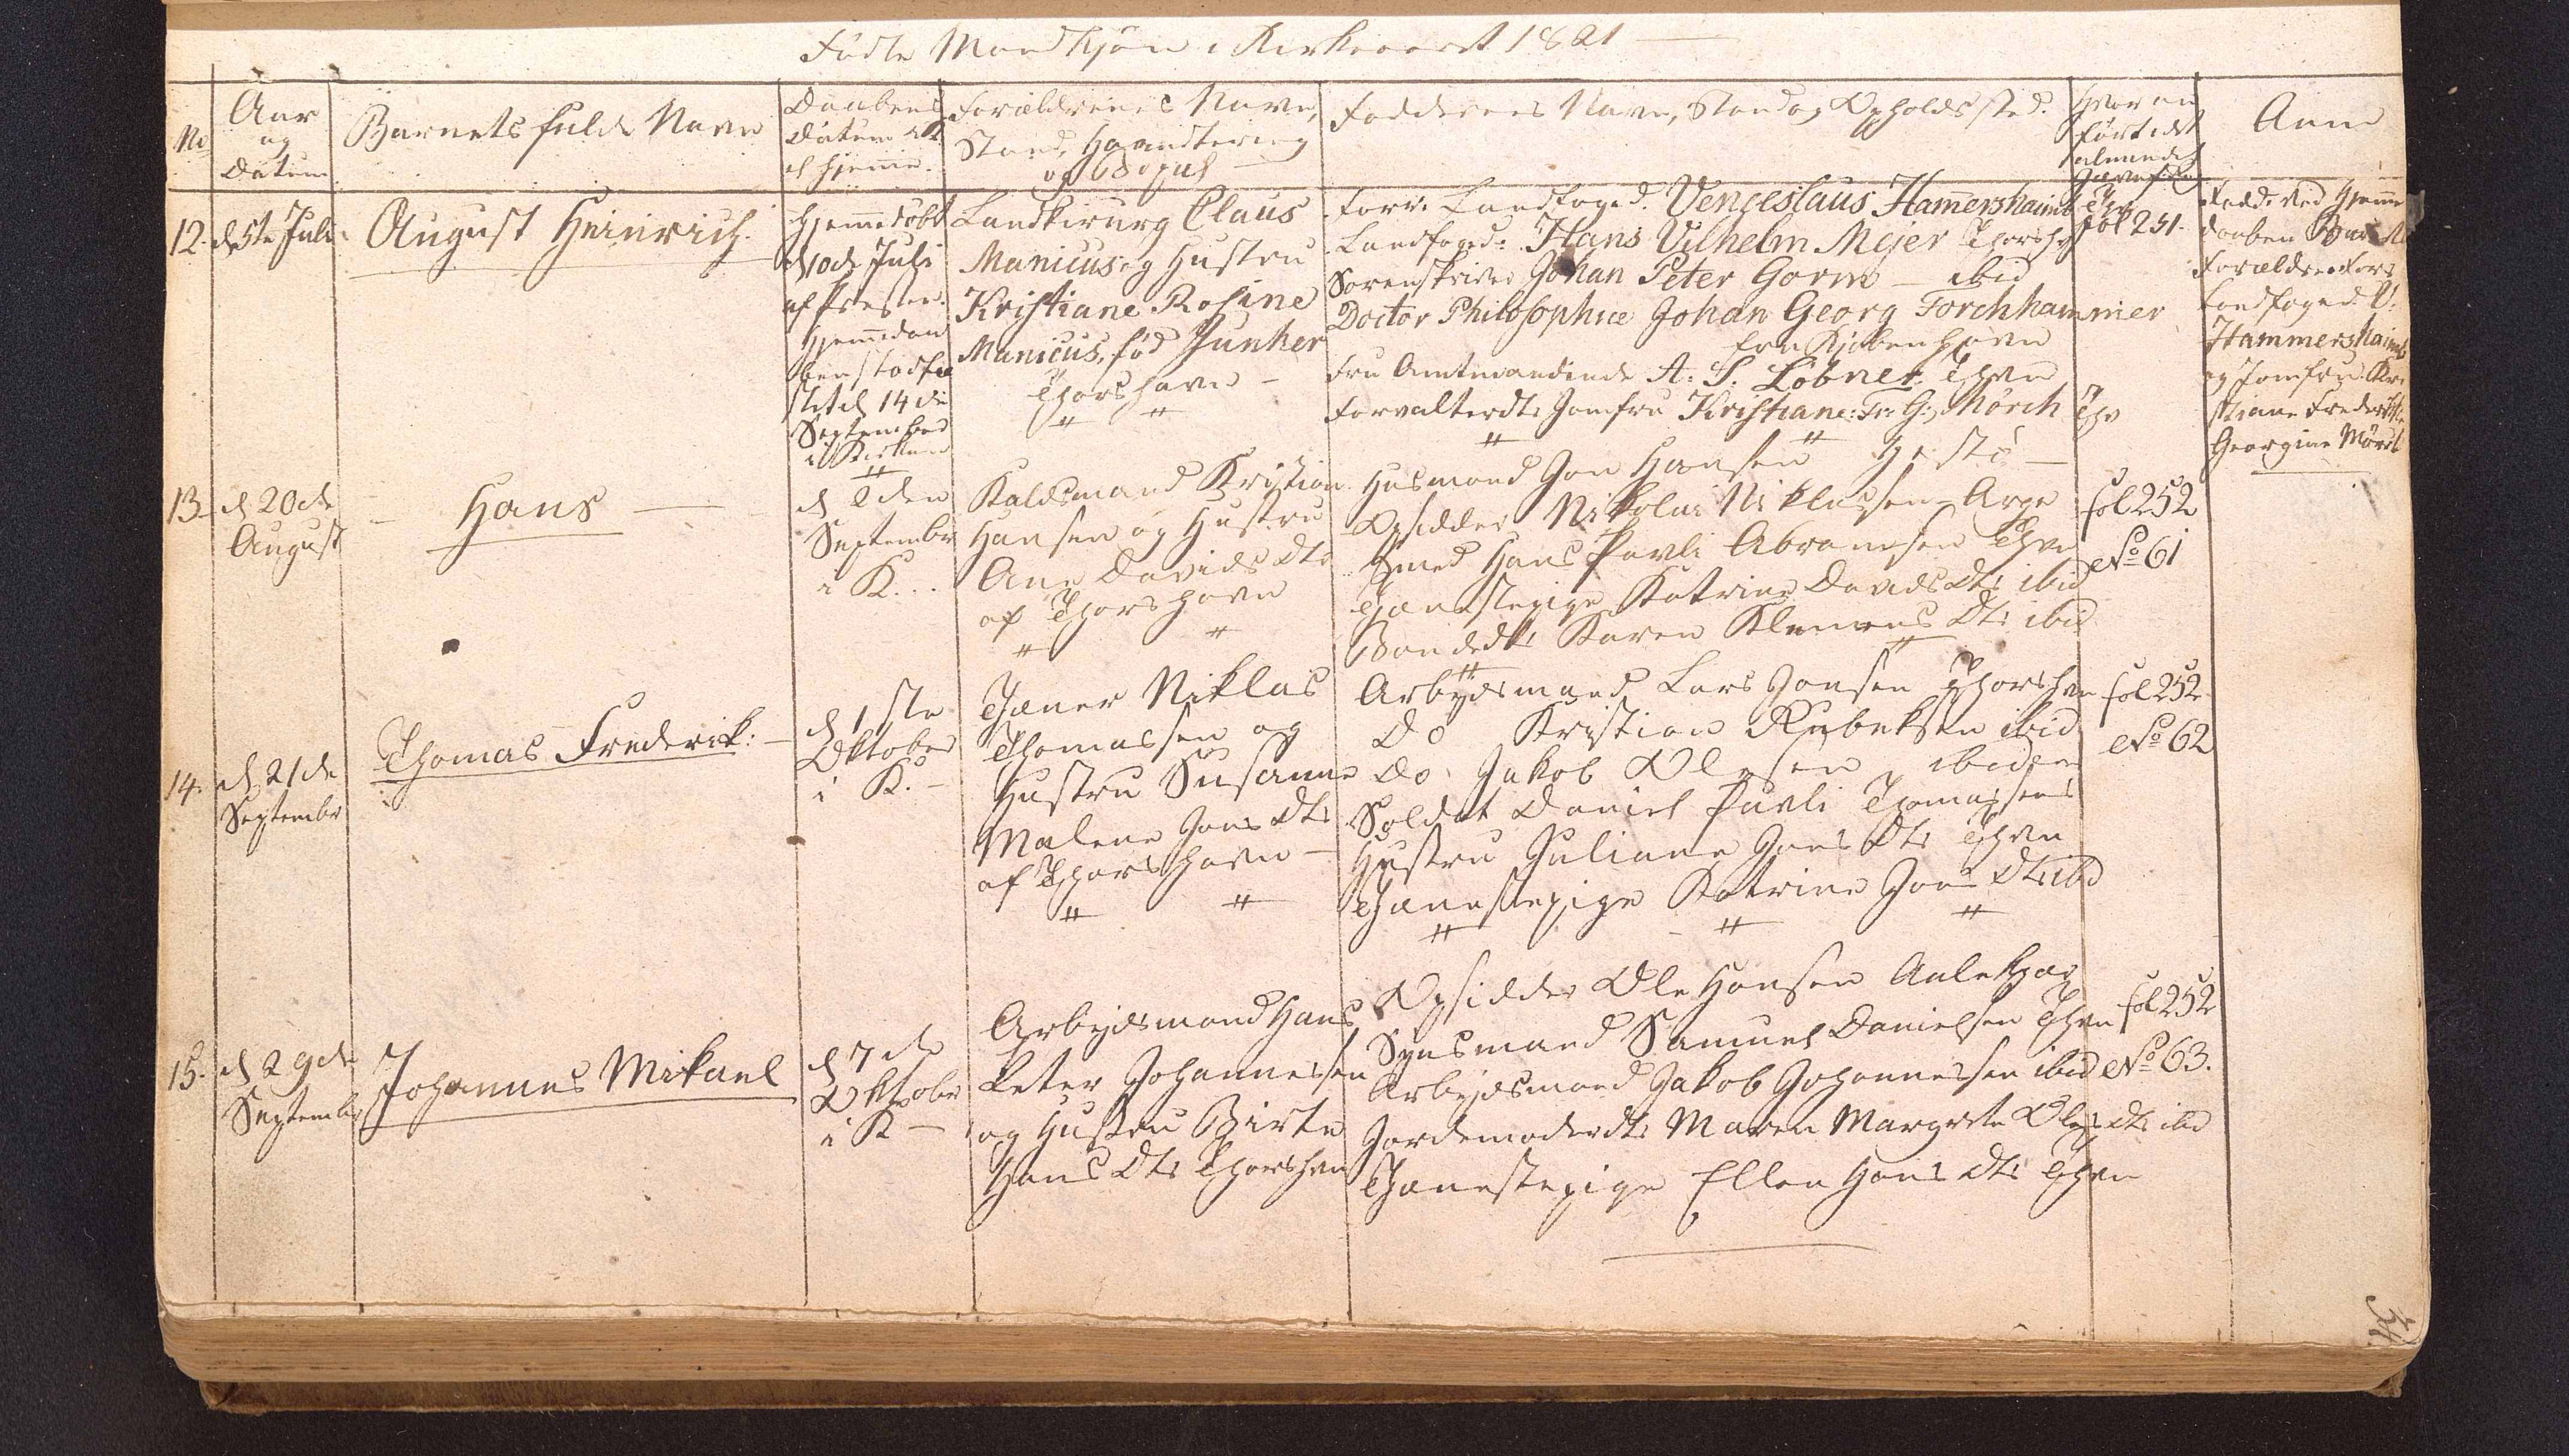 Födte Mandkjön i Kirkeaaret 1821
No
Aar
og
Datum
Barnets fulde Navn
Daabens
Datum i K.
el hjemme.
Forældrenes Navn,
Stand, Haandtering
og Bopæl
Faddernes Navn, Stand og Opholdssted.
Hvor an
fört i det
almindel
Anm
12.
d 5te Juli
August Heinrich.
Hjemmedöbt
d 10de Juli
af Præsten.
Hjemmedaa
ben stadfæ
stet d 14de
September
i Kirken
Landkirurg Claus
Manicus og Hustru
Kristiane Rosine
Manicus, föd Junker
Thorshavn
Forr. Landfoged. Venceslaus Hamershaimb
Landfoged. Hans Vilhelm Mejer Thorshv
Sorenskriver Johan Peter Gorm ibid
Doctor Philosophiæ Johan Georg Forchhammer
fra Kjöbenhavn
Fru Amtmandinde A. S. Löbner Thvn
Forvalterdtr Jomfru Kristiane Fr: G: Mörch Thv
fol 251.
Fadd. ved Hjemme
daaben
Forældre Forr
Landfoged V.
Hammershaimb
og Jomfru Kri
stiane Frederikke
Georgine Mörch
13.
d 20de
August
Hans
d 2den
Septembr
i K.
Kaldsmand Kristian
Hansen og Hustru
Ane Davids Dtr
af Thorshavn
Husmand Jon Hansen Hestö
Opsidder Nikolai Niklassen Arge
Smed Hans Pavli Abramsen Thvn
Tjenestepige Katrine Davidsdtr ibid
Bondedtr Karen Klemens Dtr ibid
fol 252
No 61
14.
d 21de
Septembr
Thomas Frederik.
d 1ste
Oktober
i K.
Tjener Niklas
Thomassen og
Hustru Susanne
Malene Jons Dtr
af Thorshavn
Arbejdsmand Lars Jonsen Thorshvn
Do Kristian Rybeksen ibid
Do. Jakob Olesen ibidem
Soldat Daniel Pavli Thomassens
Hustru Juliane Jons Dtr Thvn
Tjenestepige Katrine Jons Dtr ibid
fol 252
No 62
15.
d 29de
Septembr
Johannes Mikael
d 7de
Oktober
i K
Arbejdsmand Hans
Peter Johannessen
og Hustru Birte
Hans Dtr Thorshvn
Opsidder Ole Hansen
Synsmand Samuel Danielsen Thvn
Arbejdsmand Jakob Johannessen ibid
Jordemoderdtr Maren Margrete Oles dtr ibid
Tjenestepige Ellen Hans dtr Thvn
fol 252
No 63.
34.